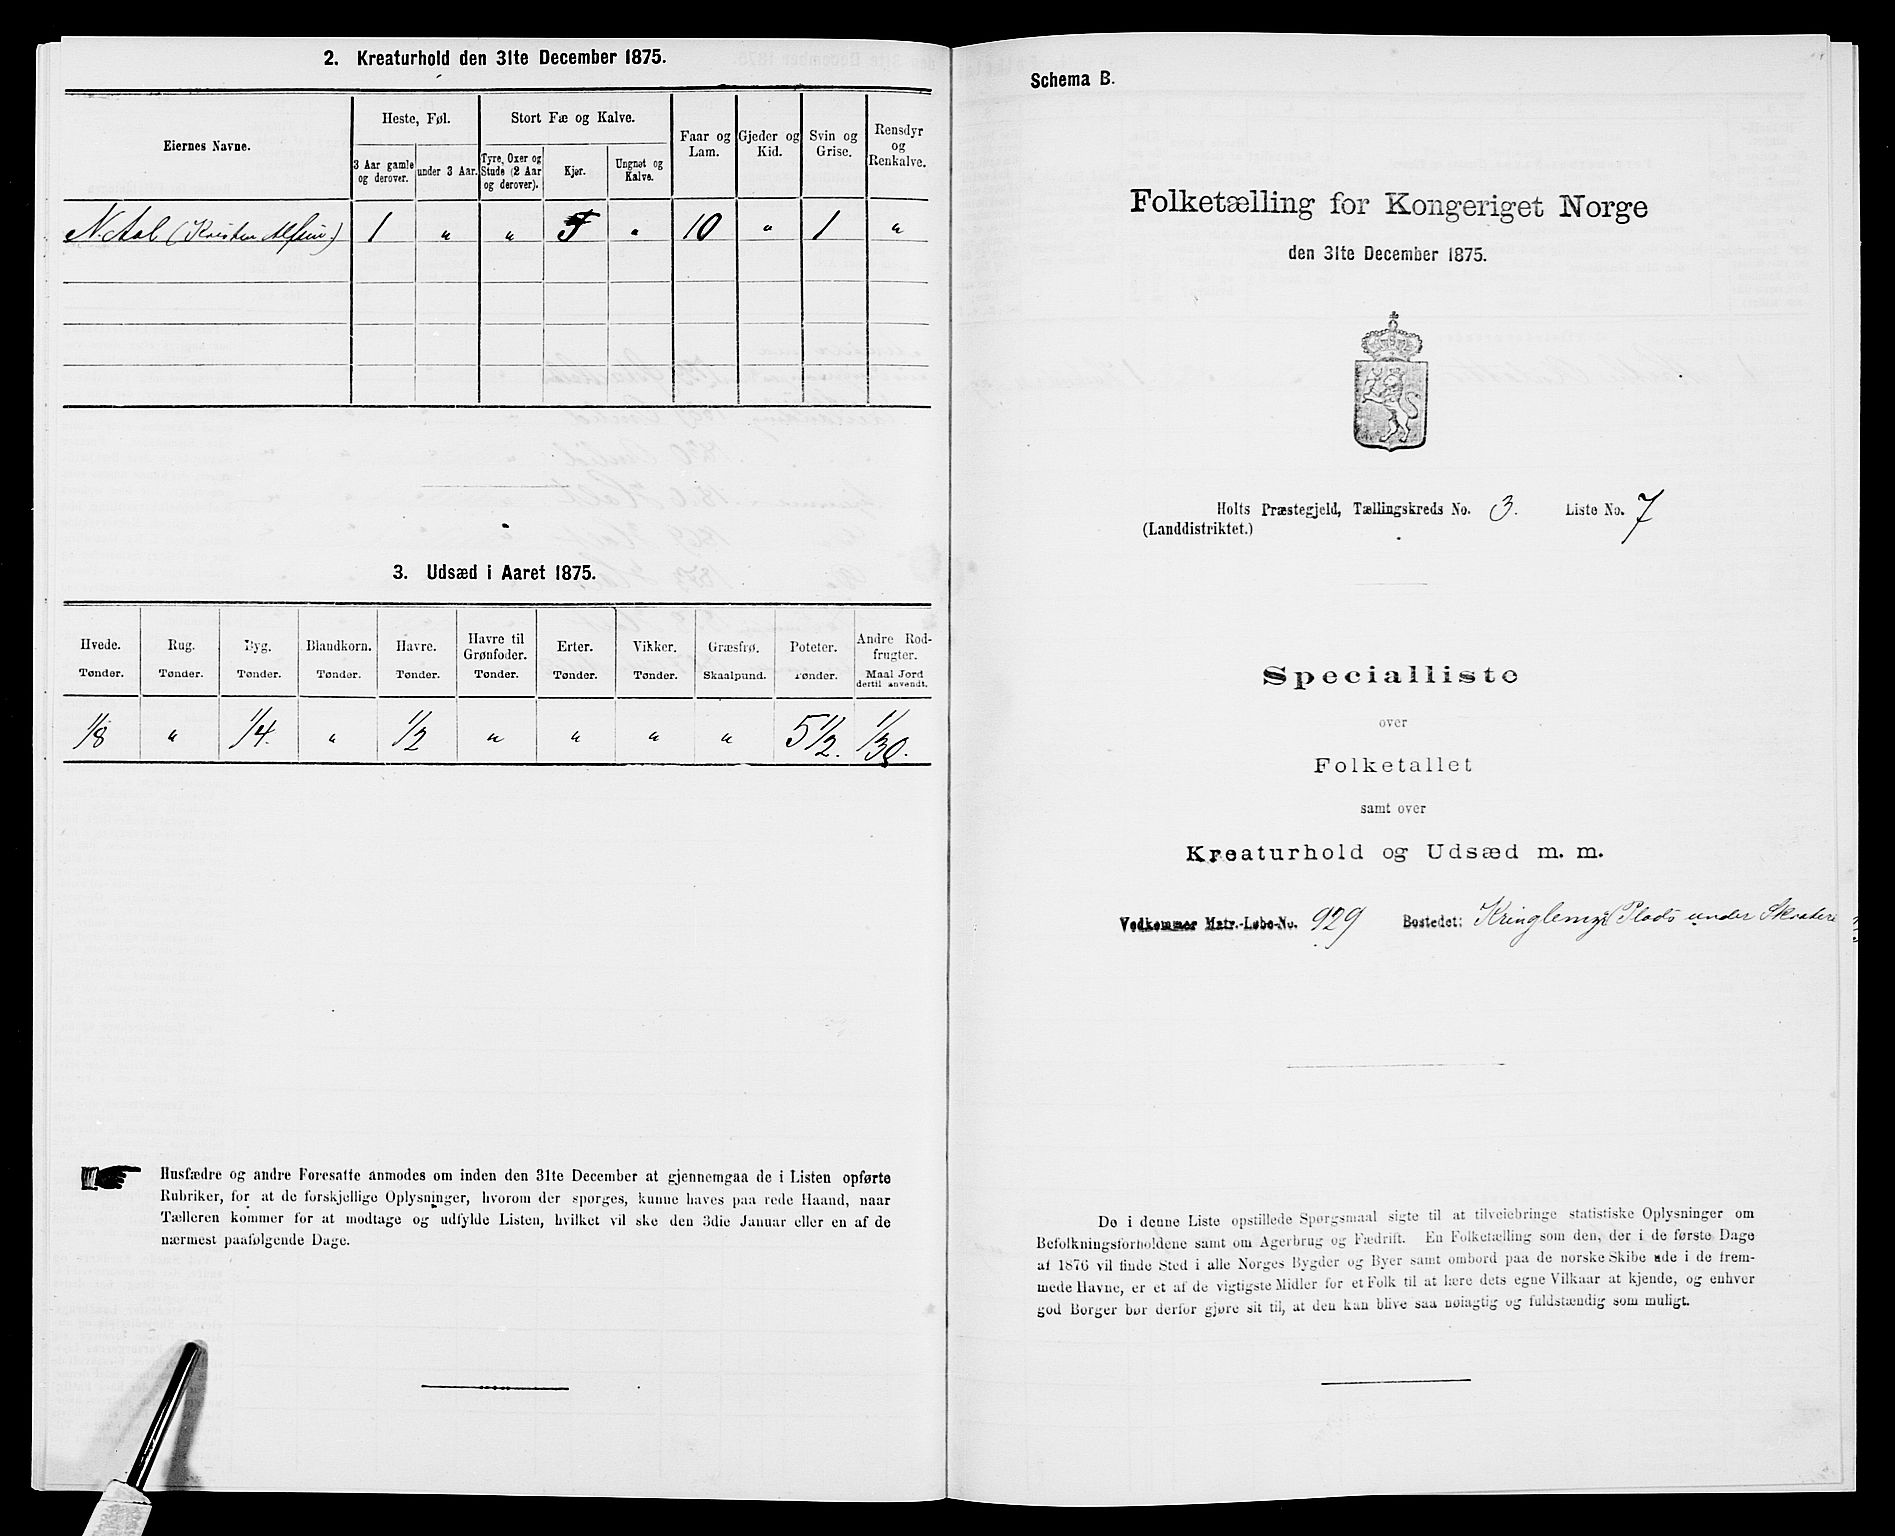 2. Kreaturhold den 31te December 1875.
Eiernes Navne.
Heste, Føl.
Stort Fæ og Kalve.
Faar og Lam.
Gjeder og Kid.
Svin og Grise.
Rensdyr og Renkalve.
3 Aar gamle og derover.
under 3 Aar.
Tyre, Oxer og Stude (2 Aar og derover).
Kjør.
Ungnøt og Kalve.
N. Aal 1 " " " 10 " 1 "
3. Udsæd i Aaret 1875.
Hvede. Rug. Byg. Blandkorn. Havre. Havre til Grønfoder. Erter. Vikker. Græsfrø. Poteter. Andre Rodfrugter.
Tønder. Tønder. Tønder. Tønder. Tønder. Tønder. Tønder. Tønder. Skaalpund. Tønder. Maal Jord dertil anvendt.
1/8 " 1/4. " 1/2 " " " " 5 1/2. 1/30.
Husfædre og andre Foresatte anmodes om inden den 31te December at gjennemgaa de i Listen opførte
Rubriker, for at de forskjellige Oplysninger, hvorom der spørges, kunne haves paa rede Haand, naar
Tælleren kommer for at modtage og udfylde Listen, hvilket vil ske den 3die Januar eller en af de
nærmest paafølgende Dage.
Schema B.
Folketælling for Kongeriget Norge
den 31te December 1875.
Holts Præstegjeld, Tællingskreds No. 3. Liste No. 7
(Landdistriktet.)
Specialliste
over
Folketallet
samt over
Kreaturhold og Udsæd m. m.
Vedkommer Matr.-Løbe-No. 929 Bostedet: Kringlemyr Plads under
De i denne Liste opstillede Spørgsmaal sigte til at tilveiebringe statistiske Oplysninger om
Befolkningsforholdene samt om Agerbrug og Fædrift. En Folketælling som den, der i de første Dage
af 1876 vil finde Sted i alle Norges Bygder og Byer samt ombord paa de norske Skibe ude i de frem-
mede Havne, er et af de vigtigste Midler for et Folk til at lære dets egne Vilkaar at kjende, og enhver
god Borger bør derfor gjøre sit til, at den kan blive saa nøiagtig og fuldstændig som muligt.